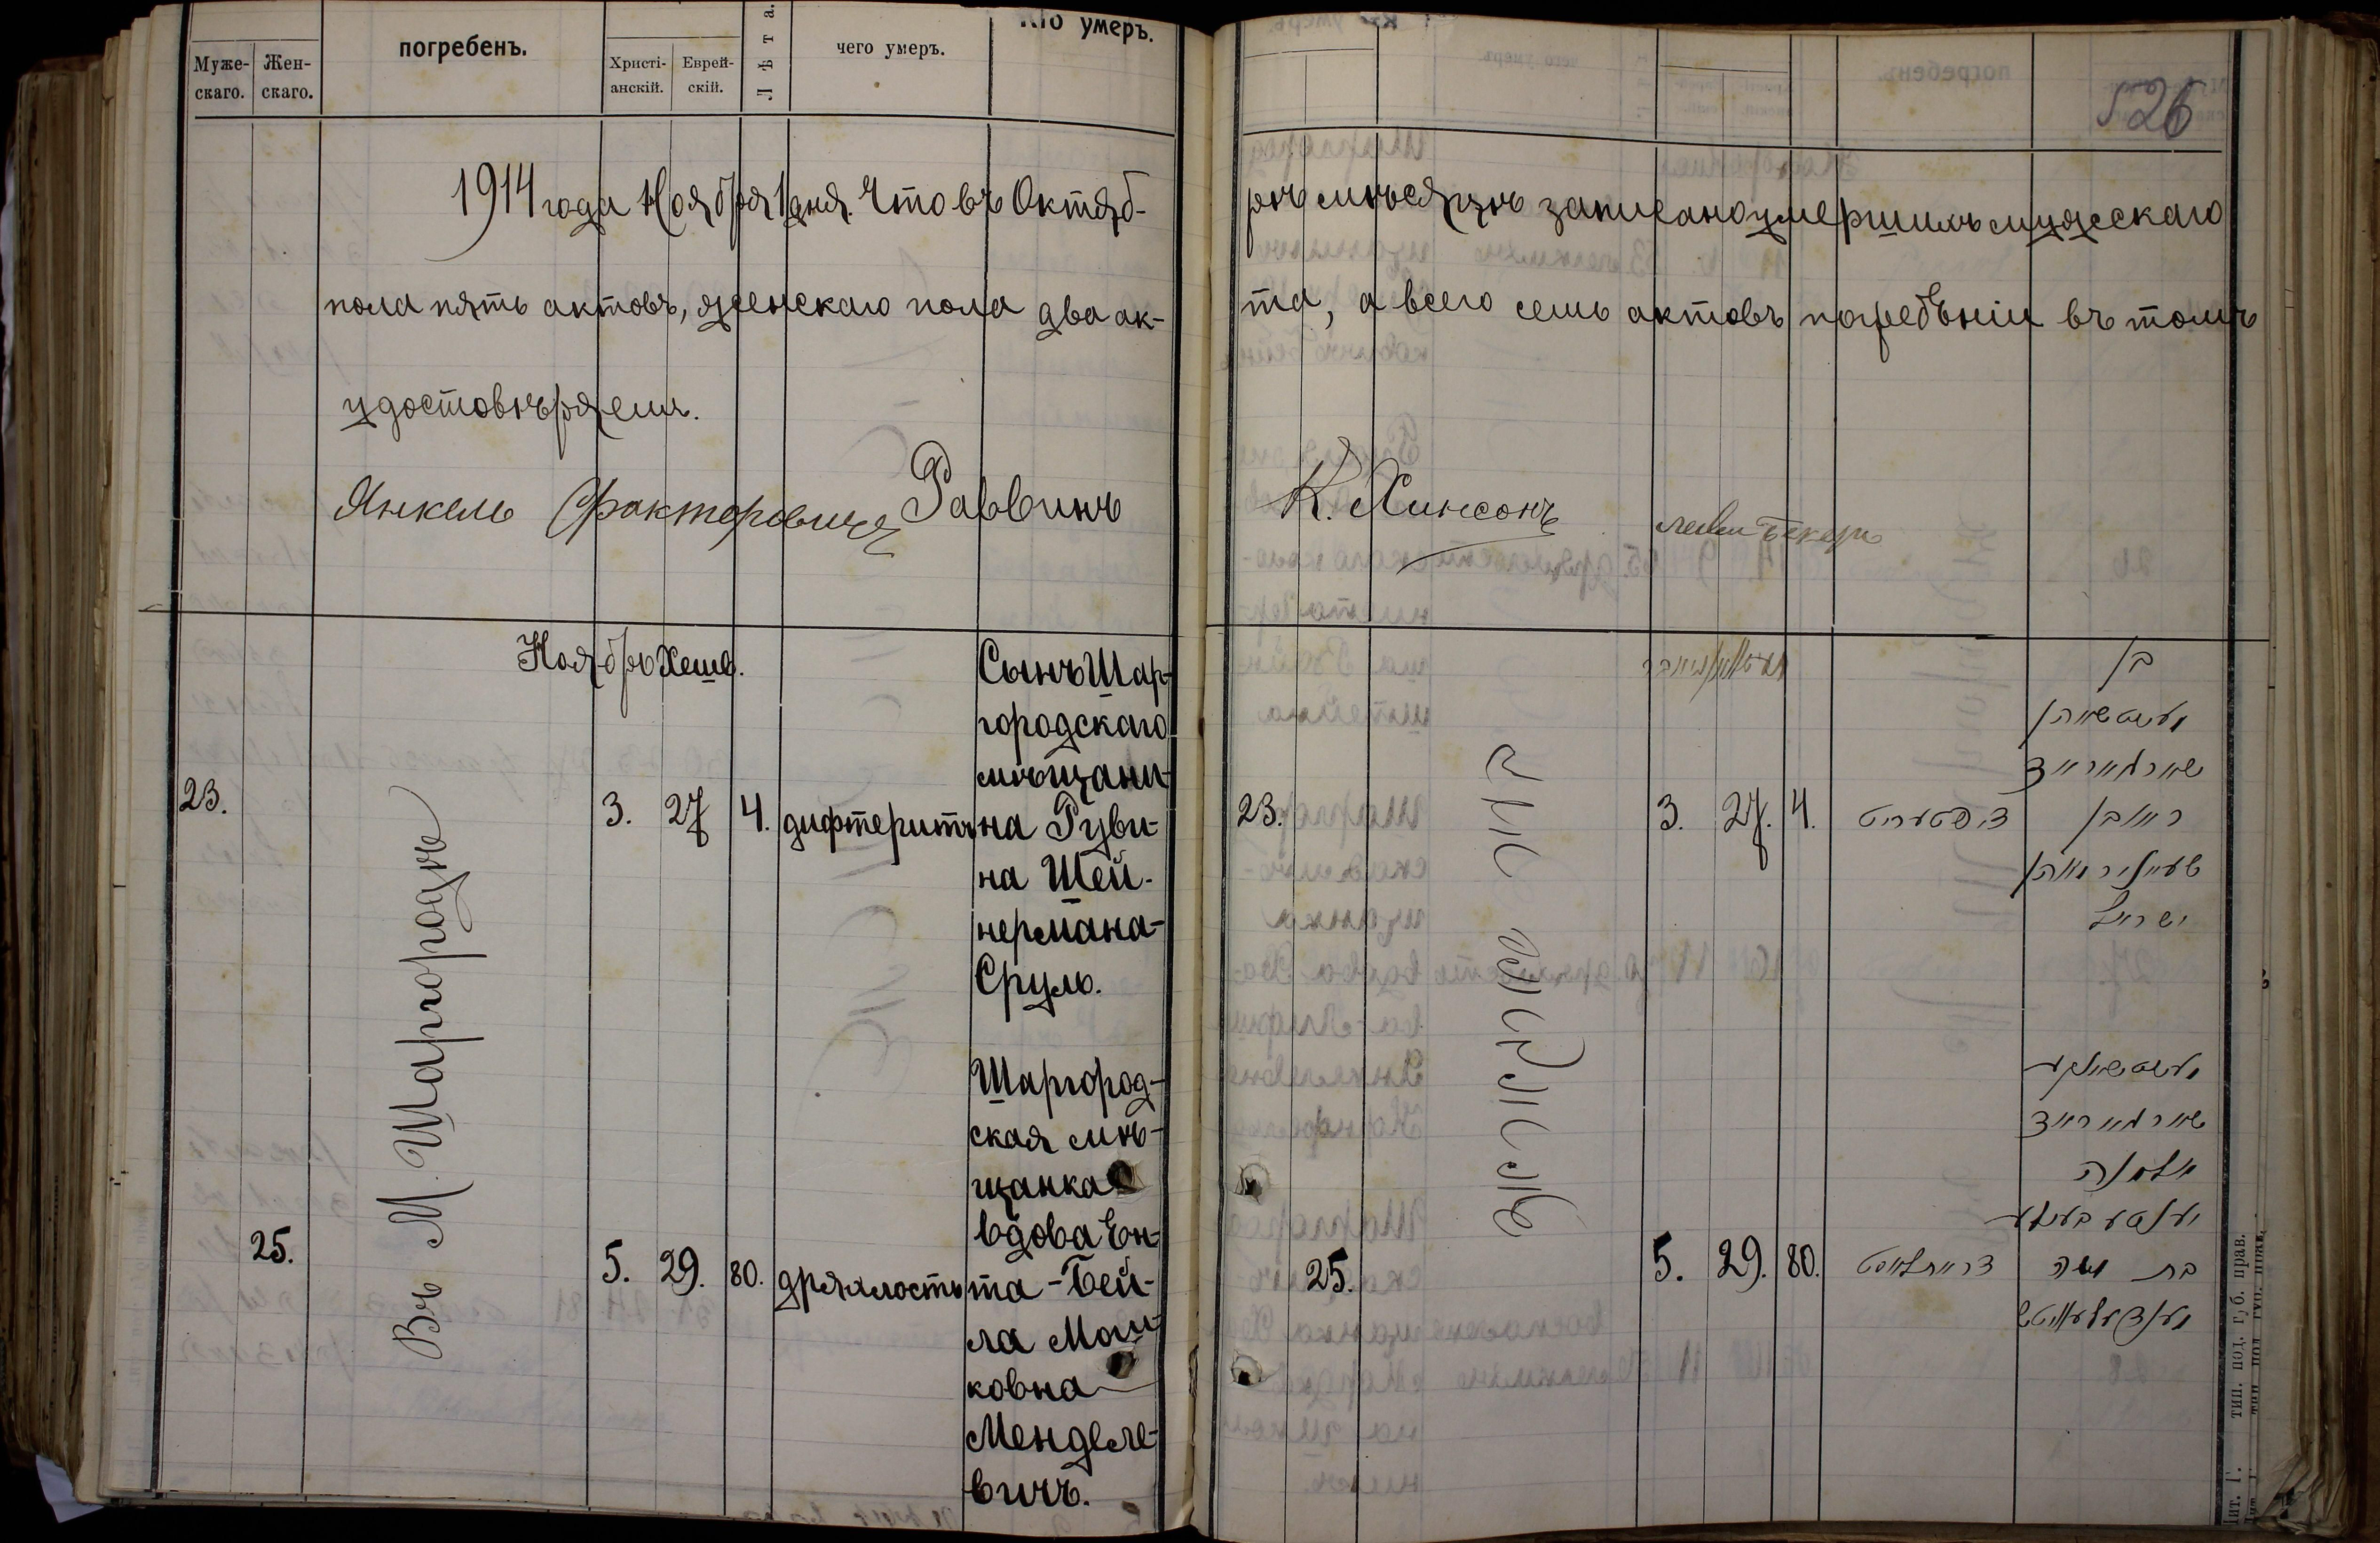 Муже-
скаго.
Жен-
скаго.
погребенъ.
Христі-
анскій.
Еврей-
скій.
Лѣта.
чего умеръ.
Кто умеръ.
526
1914 года Ноября 1 дня. Что въ Октяб-
рѣ мѣсяцѣ записано умершимъ мужескаго
пола пять актовъ, женскаго пола два ак-
та, а всего семь актовъ погребѣніи въ томъ
удостовѣряемъ.
Янкель Факторовичъ Раввинъ
К. Хинсонъ
Ноябрь Хешв.
Въ М. Шаргородѣ
23.
3. 27 4. дифтеритъ
Сынъ Шар-
городскаго
мѣщани-
на Руви-
на Шей-
нермана-
Сруль.
25.
5. 29. 80. дряхлость
Шаргород-
ская мѣ-
щанка
вдова Ен-
та-Бей-
ла Мош-
ковна
Менделе-
вичъ.
23.
3. 27. 4.
בן
שאראגראד
ראובן
ישראל
25.
5. 29. 80.
שאראגראד
אלמנה
יענטע ביילע
בת משה